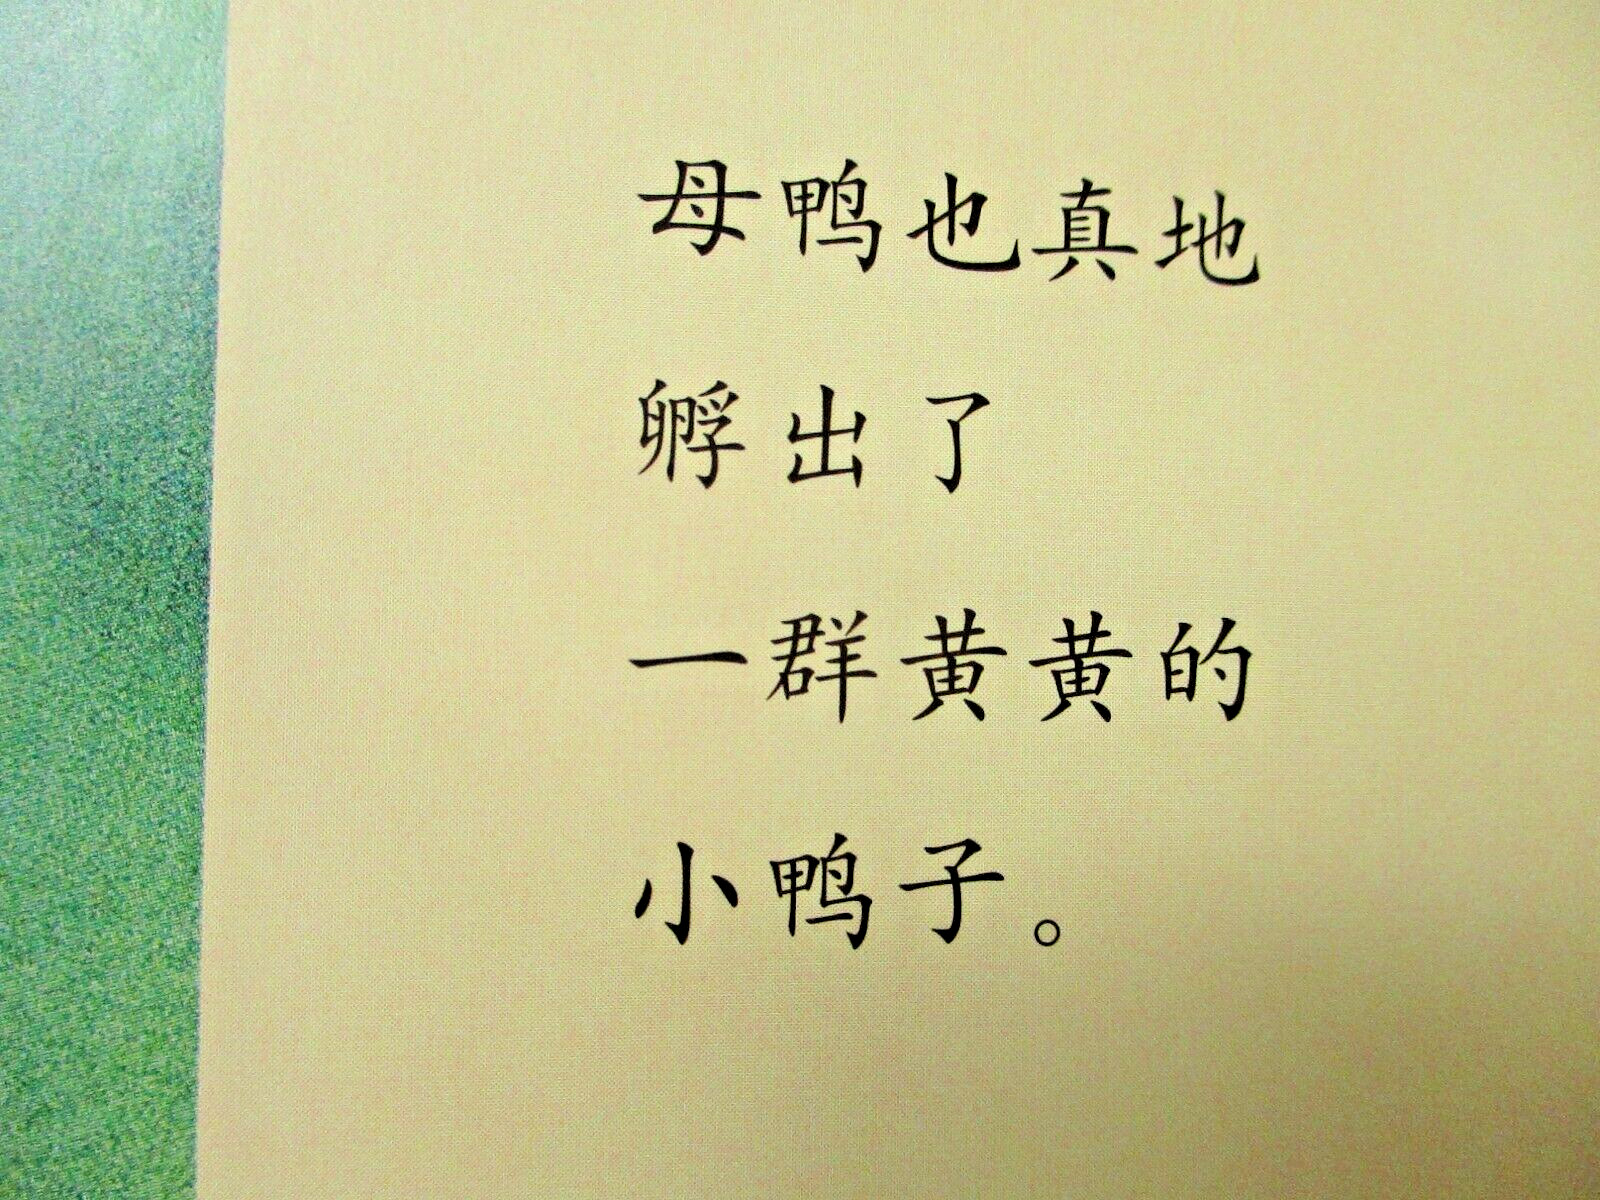 母鸭也真地
孵出了
一群黄黄的
小鸭子。